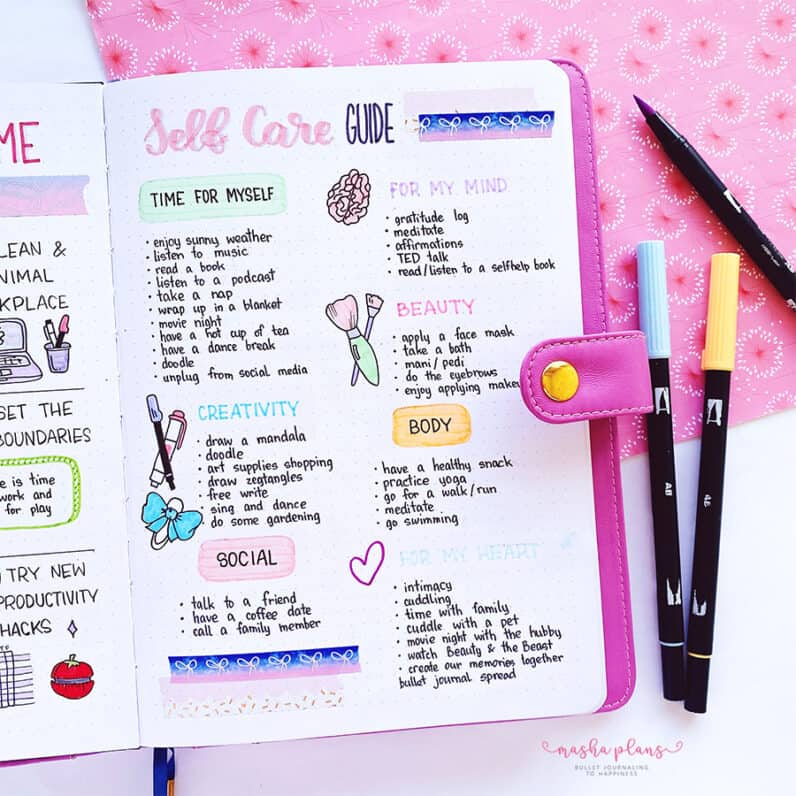 ME
LEAN &
NIMAL
KPLACE
SET THE
BOUNDARIES
e is time
work and
for play
TRY NEW
PRODUCTIVITY
HACKS
Self Care GUIDE
TIME FOR MYSELF
• enjoy sunny weather
• listen to music
• read a book
• listen to a podcast
• take a nap
• wrap up in a blanket
• movie night
• have a hot cup of tea
• have a dance break
• doodle
• unplug from social media
CREATIVITY
• draw a mandala
• doodle
• art supplies shopping
• draw zegtangles
• free write
• sing and dance
• do some gardening
SOCIAL
• talk to a friend
• have a coffee date
• call a family member
FOR MY MIND
• gratitude log
• meditate
• affirmations
• TED talk
• read/listen to a selfhelp book
BEAUTY
• apply a face mask
• take a bath
• mani/pedi
• do the eyebrows
• enjoy applying makeu
BODY
• have a healthy snack
• practice yoga
• go for a walk/run
• meditate
• go swimming
FOR MY HEART
• intimacy
• cuddling
• time with family
• cuddle with a pet
• movie night with the hubby
• watch Beauty & the Beast
• create our memories together
bullet journal spread
masha plans
BULLET JOURNALING
TO HAPPINESS